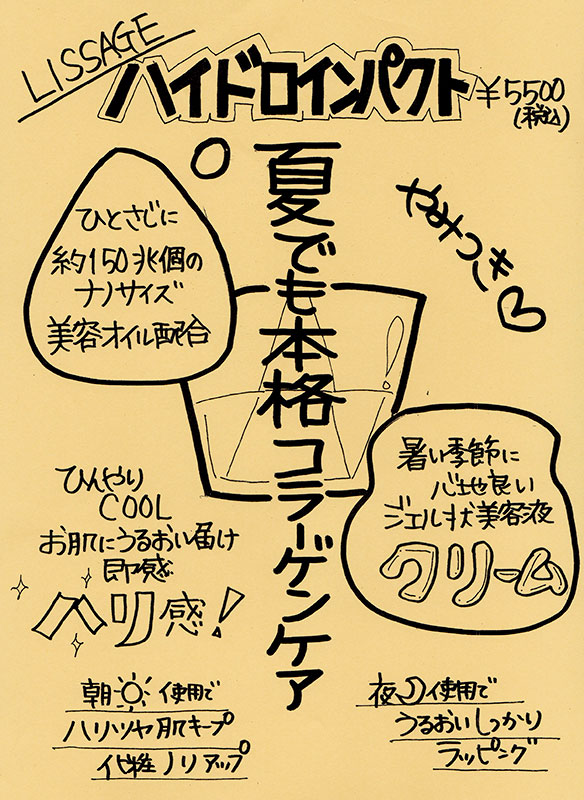 LISSAGE
ハイドロインパクト
¥5500
(税込)
夏でも本格コラーゲンケア
やみつき♡
ひとさじに
約150兆個の
ナノサイズ
美容オイル配合
暑い季節に
心地良い
ジェル状美容液
クリーム
ひんやり
COOL
お肌にうるおい届け
即感
ハリ感!
朝使用で
ハリツヤ肌キープ
化粧ノリアップ
夜使用で
うるおいしっかり
ラッピング